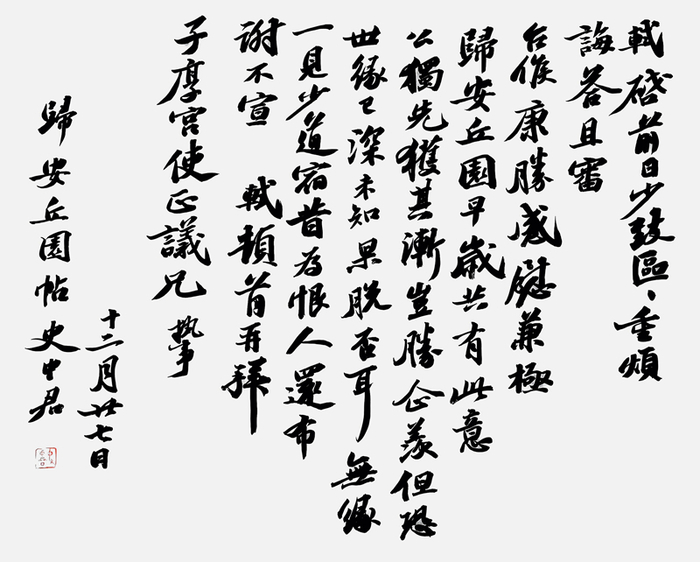 軾啓前日少致區、重煩
誨答且審
台候康勝感慰兼極
歸安丘園早歲共有此意
公獨先獲其漸豈勝企羨但恐
世緣已深未知果脫否耳 無緣
一見少道宿昔為恨人還布
謝不宣 軾頓首再拜
子厚宮使正議兄 執事
十二月廿七日
歸安丘園帖 史中君